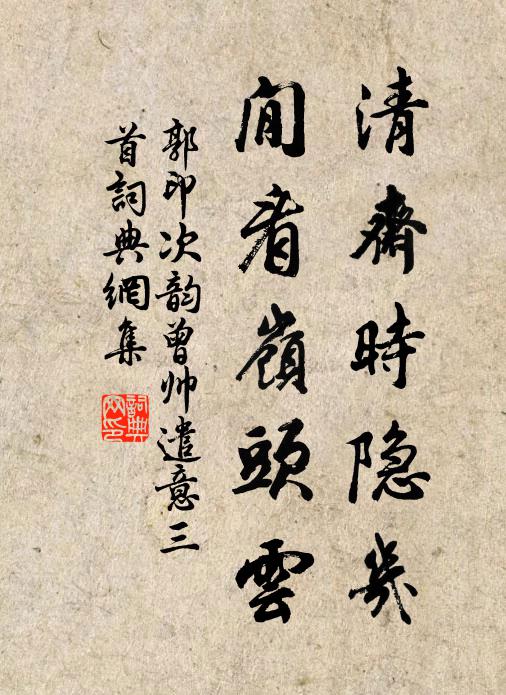 清齋時隐幾
閒看嶺頭雲
郭印次韵曾帅遣意三
首詞典網集
詞典
网印